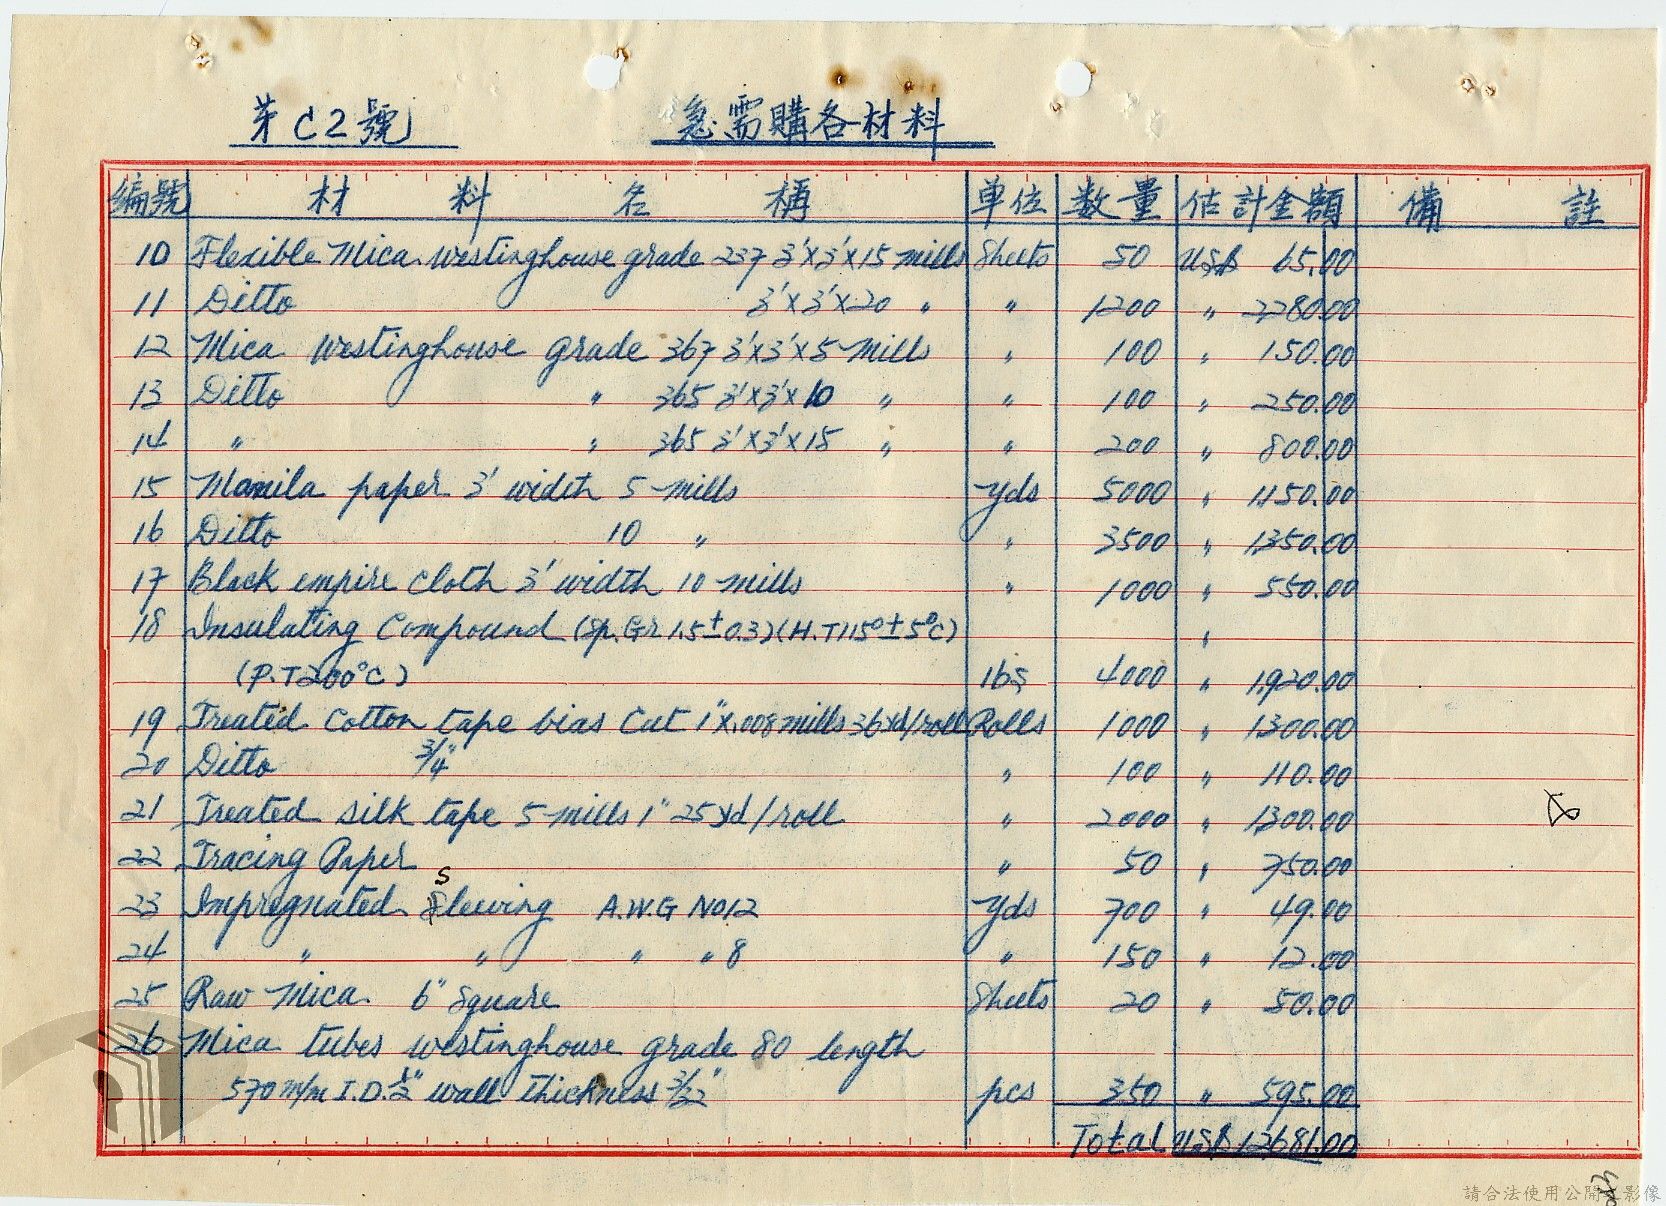 第C2號 急需購各材料
編號 材料名稱 單位 数量 估計金額 備註
10 Flexible Mica Westinghouse grade 237 3'x3'x15 mills Sheets 50 US$ 65.00
11 Ditto 3'x3'x20 " " 1200 " 2,280.00
12 Mica Westinghouse grade 367 3'x3'x5 mills " 100 " 150.00
13 Ditto " 365 3'x3'x10 " " 100 " 250.00
14 " " 365 3'x3'x15 " " 200 " 800.00
15 Manila paper 3' width 5 mills yds 5000 " 1,150.00
16 Ditto 10 " " 3500 " 1,350.00
17 Black empire cloth 3' width 10 mills " 1000 " 550.00
18 Insulating Compound (Sp.Gr 1.5±0.3)(H.T115°±5°C) "
(P.T200°C) lbs 4000 " 1,920.00
19 Treated Cotton tape bias Cut 1"x.008 mills 36yd/roll Rolls 1000 " 1,300.00
20 Ditto 3/4" " 100 " 110.00
21 Treated silk tape 5 mills 1" 25yd/roll " 2000 " 1,300.00
22 Tracing Paper " 50 " 750.00
23 Impregnated Sleuing A.W.G No12 yds 700 " 49.00
24 " " " " 8 " 150 " 12.00
25 Raw Mica 6" Square Sheets 20 " 50.00
26 Mica tubes westinghouse grade 80 length
570 m/m I.D. 1/2" wall thickness 3/32" pcs 350 " 595.00
Total US$ 12,681.00
請合法使用公開影像